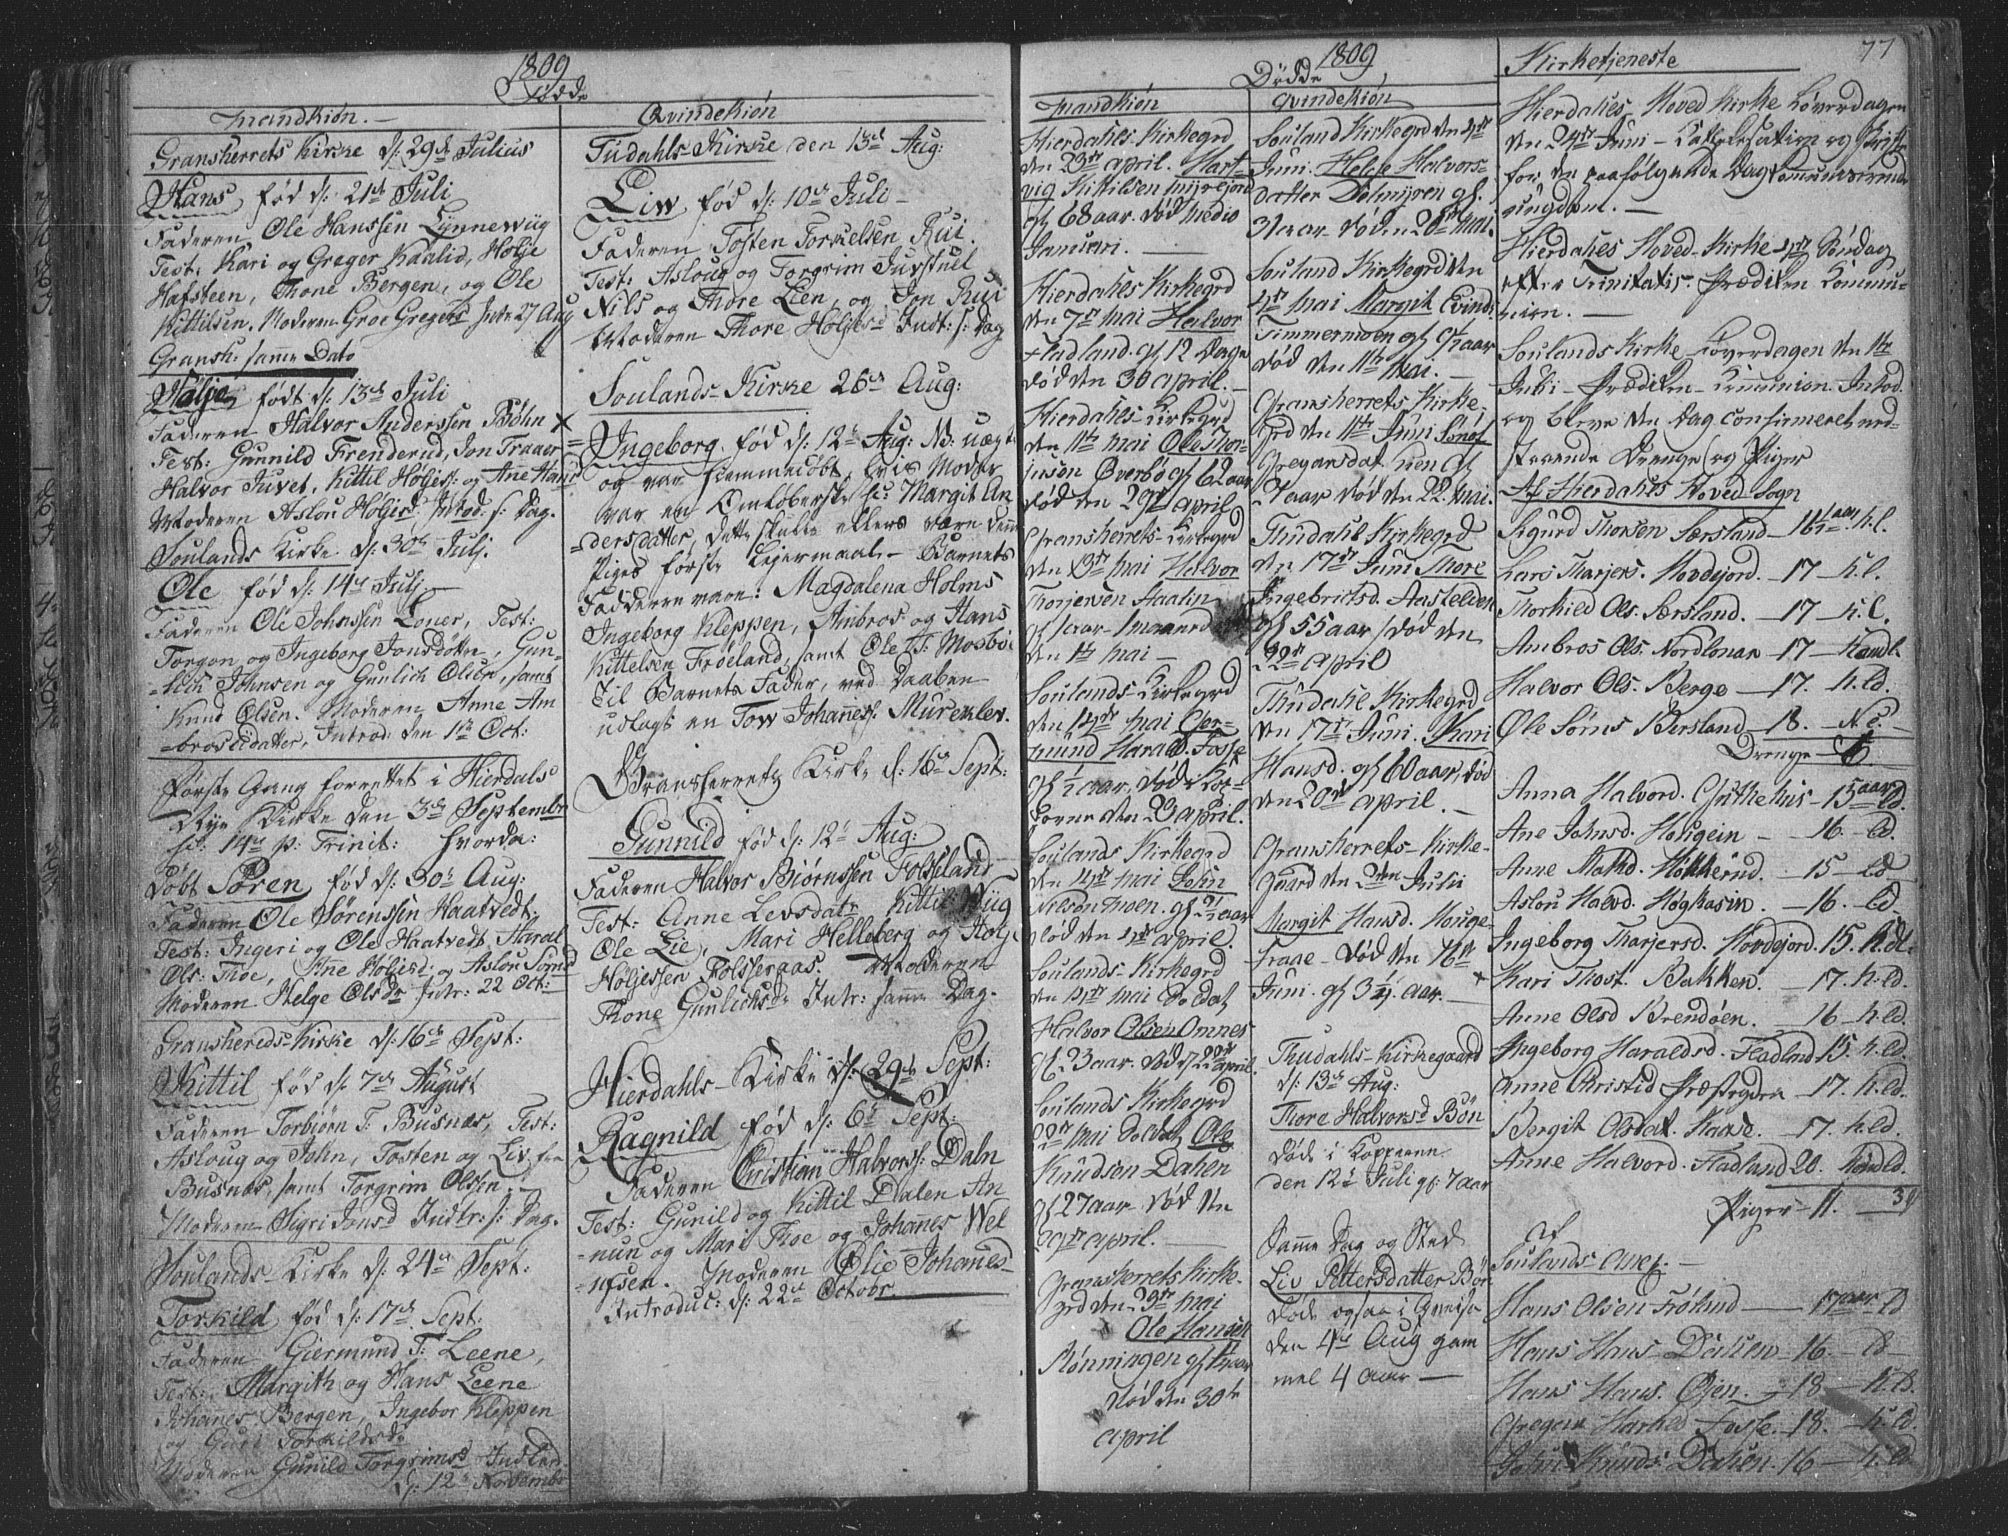 1809
Fødde
Mandkiøn. —
Gransherrets Kirke d: 29de Julius
Hans, fød d: 21de Juli
Faderen Ole Hanssen Lynnewiig
Test: Kari og Greger Kaalid, Hølje
Hafsteen, Thone Bergen, og Ole
Kittilsen. Moderen Groe Gregersd Intr: 27 Aug
Gransh: samme Dato
Hølje, født d: 13de Juli
Faderen Halvor Anderssen Bøhn
Test: Gunnild Frenderud, Jon Traaer
Halvor Juvet, Kittil Høljes: og Anne Hans
Moderen Aslou Høljesd. Introd. s: Dag.
Soulands Kirke d: 30te Julj.
Ole fød d: 14de Julj
Faderen Ole Johnssen Loner, Test:
Torgon og Ingeborg Jonsdøttr, Gun-
-lich Johnsen og Gunlich Olsen, samt
Knud Olsen. Moderen Anne Am
-brosiidatter, Introd: den 1te Oct:
Første Gang forrettet i Hierdals
Nye Kirke den 3de September
sc: 14de p: Trinit: hvorda:
Døbt Søren, fød d: 30te Aug:
Faderen Ole Sørenssen Haatvedt.
Test: Ingeri og Ole Haatvedt, Haral
Ols: Thoe, Anne Høljesd: og Aslou Sørnsd
Moderen Helge Olsdr Intr: 22 Oct:
Gransherreds-Kirke d: 16de Sept:
Kittil fød d: 7de August
Faderen Torbiørn T: Busnæs, Test:
Asloug og John, Tosten og Liv fra
Busnæs, samt Torgrim Olsen
Moderen Sigri Jonsd Indtr: s: Dag.
Soulands Kirke d: 24de Sept:
Torkild fød d: 17de Sept:
Faderen Giermund T: Leene,
Test: Margith og Hans Leene
Johannes Bergen, Ingebor Kleppen
og Guri Torkildsdr
Moderen Gunild Torgrimsd Indled
d: 12te November
Qvindekiøn
Tudahls Kirke den 13de Aug:
Liw fød d: 10de Juli —
Faderen Tosten Torkelsen Rui.
Test: Asloug og Torgrim Juvstuil
Nils og Thore Lien, og Jon Rui
Moderen Thore Holjesd Indt: s: Dag
Soulands Kirke 26de Aug:
Ingeborg fød d: 12te Aug: NB: uægt
og var hiemmedøbt, hvis Moder
var en Omløberske sc: Margit An
-dersdatter, dette skulle ellers være den
Piges første Lejermaal — Barnets
Fadderne vare: Magdalena Holms
Ingeborg Kleppen, Ambros og Hans
Kittelsen Frøeland, samt Ole T: Mosbøe
Til Barnets Fader, ved Daaben
udlagt en Tow Johannes: Mureklev.
Gransherretz Kirke d: 16de Sept:
Gunnild fød d: 12te Aug:
Faderen Halvor Biørnssen Folseland
Test: Anne Levsdatr Kittil Wiig
Ole Lie, Mari Helleberg og Holje
Høljessen Folsseraas. Moderen
Thone Gunlichsdr Intr: samme Dag.
Hierdahls-Kirke d: 29de Sept:
Ragnild fød d: 6te Sept:
Faderen Christian Halvors: Daln
Test: Gunild og Kittil Dalen An
-nun og Mari Thoe og Johannes Wel
-ufsen. Moderen Olie Johannes-
Introduc: d: 22de Octobr
1809
Dødde
Mandkiøn
Hierdahls Kirkegrd
den 23de april. Hart-
vig Kittilsen Myrejord
gl 68 aar. død medio
Januari. —
Hierdahls Kirkegrd
den 7de mai Halvor
Fladland. gl 12 Dage
død den 30 april. —
Hierdahls-Kirkegrd
den 11te mai Ole Thor-
Overbø gl 62 aar
død den 29de april
Gransherrets-Kirkegrd
mai Halvor
Thorjersen Haatin
gl 1 aar 1 maaned
den 1te mai —
Soulands-Kirkegrd
den 14de mai Ger-
mund Harald. Fosse
gl 1/2 aar, død i Kop-
perne den 23 april.
Soulands Kirkegrd
den 14de mai John
Nielsen Moen. gl 2 1/2 aar
død den april.
Soulands-Kirkegrd
mai Soldat
Halvor Olsen Omnes
gl. 23 aar. død 22de april.
Soulands Kirkegrd
22de mai Soldat Ole
Knudsen Dahlen
gl 27 aar død den
april. —
Gransherrets Kirke-
grd den mai
Ole Hansen
Rønningen gl aar
død den 30te
april
Qvindekiøn
Souland Kirkegrd den 4de
Juni. Helje Halvors-
datter gl.
3 1 aar død den 28de mai.
Souland Kirkegrd den
mai Margit Evind:
Timmermoen gl aar
død den 11te mai. —
Gransherrets Kirke-
grd den 11te Juni
gl
aar død den 22. mai.
Thudahl Kirkegrd
den 17de Juni Thore
Ingebrictsd. Aaskelden
gl 55 aar død den
22de april
Thudahl Kirkegrd
den 17de Juni. Kari
Hansd. gl 60 aar, død
den 20de april. —
Gransherrets-Kirke-
gaard den 2den Julii
Margit Hansd. Houge-
- død den 16de
Juni. gl 3 1/4 aar. —
Thudahls-Kirkegaard
d: 13de Aug:
Thore Halvorsd Bøn
døde i Kopperne
den 12te Juli gl: 7 aar
Samme Dag og Sted
Liv Pettersdatter Bøn
døde ogsaa i
den 4de Aug gam
mel 4 aar —
Kirketjeneste
77
Hierdahls Hoved Kirke Løverdagen
den 24de Juni — og
for den paafølgende Dag
ungdom. —
Hierdahls Hoved-Kirke 4de Søndag
efter Trinitatis Prædiken Commu-
nion. —
Soulands Kirke Løverdagen den 1te
Juli — Prædiken — Communion. Introd.
og bleve den Dag confirmeret ned-
staaende Drenge og Piger
Af Hierdahls Hoved Sogn
Sigurd Thorsen Særsland — 16 1/2 aar k.l.
Lars Tharjers. Hovdejord. — 17 — k.l.
Thorkild Ols. Særsland. — 17 — k.l.
Ambros Ols. Nordlonar — 17 — Kundl.
Halvor Ols. Berge — 17. k.ld.
Ole Søms Bersland — 18. — N.C.
Drenge — 6
Anna Halvord. — 15 aar ld.
Ane Johnsd. Hougein — 16. — ld.
Anne Mathd. Hokkerud. — 15 — ld
Aslou Halvd. Høgkasin. — 16. ld.
Ingeborg Tharjersd. Hovdejord. 15. k.dl.
Kari Thost. Bakken. — 17. k.ld.
Anne Olsd Brendøen. — 16 — k.ld.
Ingeborg Haraldsd. Fladland 15. k.ld.
Anne Christid Præstegden 17. k.ld.
Bergit Olsdat. Haasd. — 17. k.ld.
Anne Halvord. Fladland 20. kundld.
Piger — 11.
af
Soulands Anex. —
Hans Olsen Frølund — 17 aar ld
Hans Hans Dahlen — 16 — ld
Hans Hans. Øien. — 18 — k.ld.
Gregar Fosse. 18. k.ld
John Knuds. Dahlen. 16 — k.ld